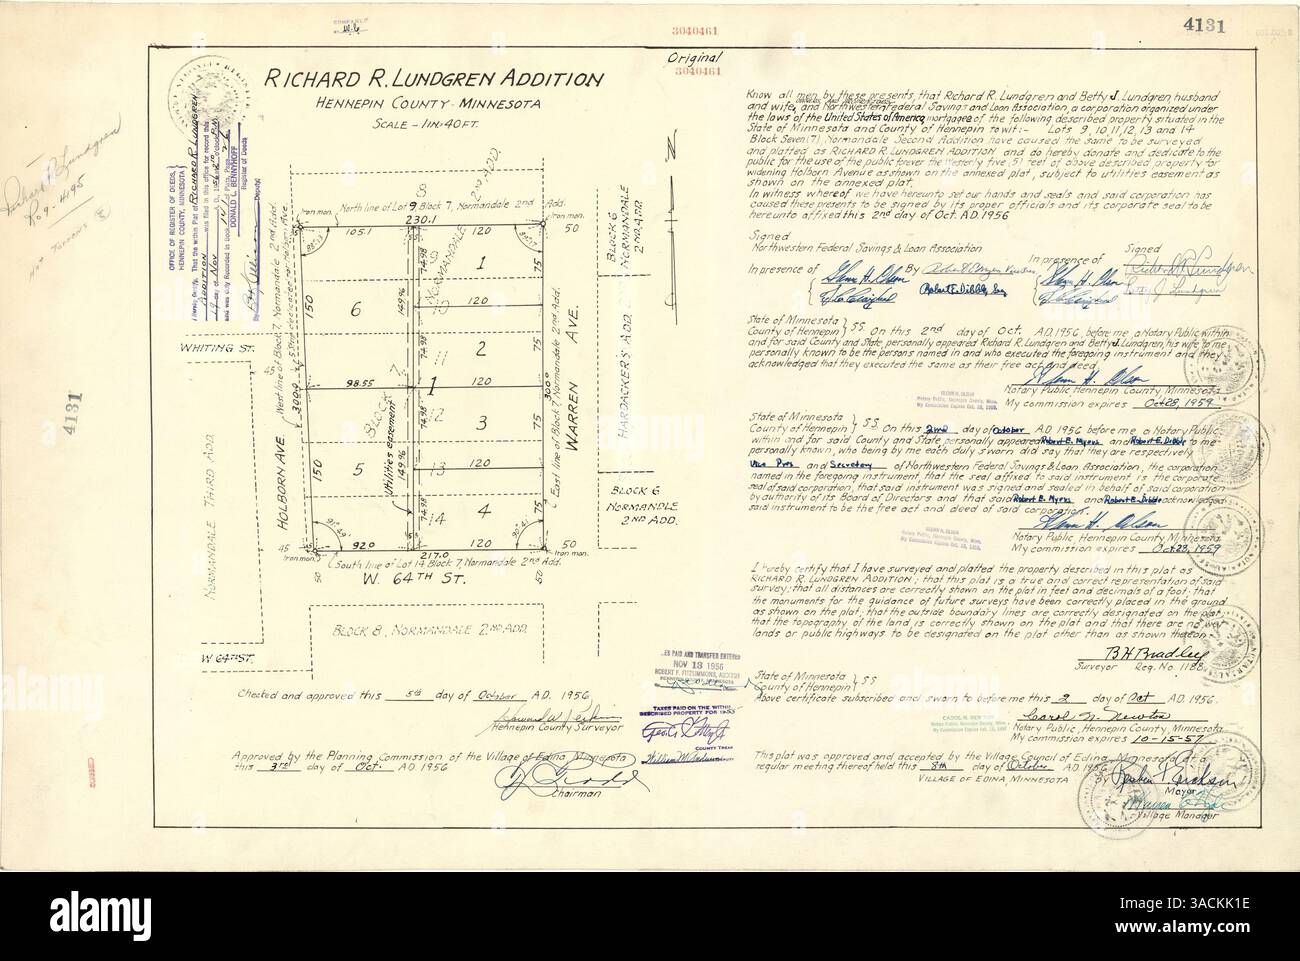 COMPARED
3040461
Original
3040461
4131
RICHARD R. LUNDGREN ADDITION
HENNEPIN COUNTY - MINNESOTA
SCALE - 1 IN. 40 FT.
OFFICE OF REGISTER OF DEEDS,
HENNEPIN COUNTY, MINNESOTA
I hereby certify, That the within Plat of RICHARD R. LUNDGREN
ADDITION was filed in this office for record this
DONALD C. BENNYHOFF
Register of Deeds
Deputy
4131
North line of Lot 9 Block 7, Normandale 2nd Add.
230.1
Iron mon.
105.1
120
50
Iron mon.
West line of Block 7, Normandale 2nd Add.
5 ft. dedicated for Holborn Ave.
8
2ND. ADD.
NORMANDALE
BLOCK 7
1
2
3
4
5
6
1
9
10
11
12
13
14
74.98
149.96
75
150
98.55
120
300.0
Utilities easement
East line of Block 7, Normandale 2nd Add.
WARREN AVE.
HOLBORN AVE.
WHITING ST.
NORMANDALE THIRD ADD.
BLOCK 6
NORMANDALE
2ND. ADD.
HARDACKER'S ADD.
BLOCK 6
NORMANDLE
2ND ADD.
45
Iron mon.
92.0
120
50
Iron mon.
217.0
South line of Lot 14 Block 7, Normandale 2nd Add.
W. 64TH ST.
50
50
BLOCK 8, NORMANDALE 2ND. ADD.
W. 64TH ST.
Checked and approved this 5th day of October A.D. 1956
Hennepin County Surveyor
Approved by the Planning Commission of the Village of Edina, Minnesota
this 3rd day of Oct. A.D. 1956
Chairman
TAXES PAID AND TRANSFER ENTERED
NOV 13 1956
ROBERT F. FITZSIMMONS, AUDITOR
TAXES PAID ON THE WITHIN
DESCRIBED PROPERTY FOR 1955
COUNTY TREAS.
Know all men by these presents, that Richard R. Lundgren and Betty J. Lundgren, husband
and wife, and Northwestern Federal Savings and Loan Association, a corporation organized under
the laws of the United States of America, mortgagee of the following described property situated in the
State of Minnesota and County of Hennepin to wit:- Lots 9, 10, 11, 12, 13 and 14
Block Seven (7), Normandale Second Addition have caused the same to be surveyed
and platted as RICHARD R. LUNDGREN ADDITION and do hereby donate and dedicate to the
public for the use of the public forever the Westerly five, 5, feet of above described property for
widening Holborn Avenue as shown on the annexed plat, subject to utilities easement as
shown on the annexed plat.
In witness whereof we have hereunto set our hands and seals and said corporation has
caused these presents to be signed by its proper officials and its corporate seal to be
hereunto affixed this 2nd day of Oct. A.D. 1956
Signed
Northwestern Federal Savings & Loan Association
In presence of
Glenn H. Olson
By
Robert E. Dibble Sec
Signed
In presence of
Glenn H. Olson
Richard R. Lundgren
Betty J. Lundgren
State of Minnesota
County of Hennepin } SS. On this 2nd day of Oct. A.D. 1956, before me, a Notary Public within
and for said County and State, personally appeared Richard R. Lundgren and Betty J. Lundgren, his wife to me
personally known to be the persons named in and who executed the foregoing instrument and they
acknowledged that they executed the same as their free act and deed.
Glenn H. Olson
Notary Public, Hennepin County, Minnesota
My commission expires Oct 28, 1959
GLENN H. OLSON
Notary Public, Hennepin County, Minn.
My Commission Expires Oct. 28, 1959.
State of Minnesota
County of Hennepin } SS. On this 2nd day of October A.D. 1956 before me, a Notary Public
within and for said County and State personally appeared Robert E. Myers and Robert E. Dibble to me
personally known, who being by me each duly sworn did say that they are respectively
Vice Pres. and Secretary of Northwestern Federal Savings & Loan Association, the corporation
named in the foregoing instrument, that the seal affixed to said instrument is the corporate
seal of said corporation, that said instrument was signed and sealed in behalf of said corporation
by authority of its Board of Directors and that said Robert E. Myers and Robert E. Dibble acknowledged
said instrument to be the free act and deed of said corporation.
Glenn H. Olson
Notary Public, Hennepin County, Minnesota
My commission expires Oct 28, 1959
GLENN H. OLSON
Notary Public, Hennepin County, Minn.
My Commission Expires Oct. 28, 1959.
I hereby certify that I have surveyed and platted the property described in this plat as
RICHARD R. LUNDGREN ADDITION; that this plat is a true and correct representation of said
survey; that all distances are correctly shown on the plat in feet and decimals of a foot; that
the monuments for the guidance of future surveys have been correctly placed in the ground
as shown on the plat; that the outside boundary lines are correctly designated on the plat,
that the topography of the land is correctly shown on the plat and that there are no wet
lands or public highways to be designated on the plat other than as shown thereon.
B H Bradley
Surveyor Reg. No. 1188
State of Minnesota
County of Hennepin } SS
Above certificate subscribed and sworn to before me this 2 day of Oct A.D. 1956.
Carol N. Newton
Notary Public, Hennepin County, Minnesota
My commission expires 10-15-57
CAROL N. NEWTON
This plat was approved and accepted by the Village Council of Edina, Minnesota at a
regular meeting thereof held this 8th day of October A.D. 1956
VILLAGE OF EDINA MINNESOTA
By Reuben F. Erickson
Mayor
Village Manager
alamy
Image ID: 3ACKK1E
www.alamy.com